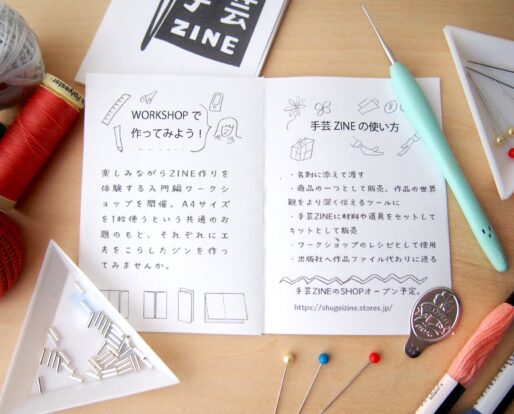 芸
ZINE
Polyester
WORKSHOPで
作ってみよう！
楽しみながらZINE作りを
体験する入門編ワークシ
ョップを開催。A4サイズ
を1枚使うという共通のお
題のもと、それぞれに工
夫をこらしたジンを作っ
てみませんか。
手芸 ZINE の使い方
・名刺に添えて渡す
・商品の一つとして販売。作品の世界
観をより深く伝えるツールに
・手芸ZINEに材料や道具をセットして
キットとして販売
・ワークショップのレシピとして使用
・出版社へ作品ファイル代わりに送る
手芸ZINEのSHOPオープン予定。
https://shugeizine.stores.jp/